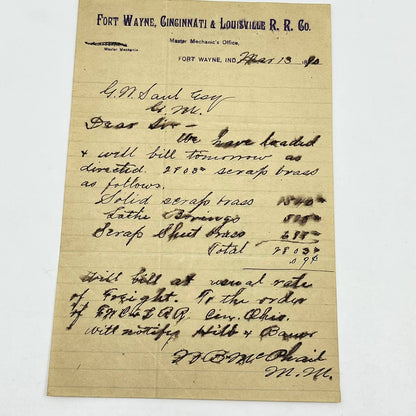 FORT WAYNE, CINCINNATI & LOUISVILLE R. R. CO.
Master Mechanic's Office,
Master Mechanic
FORT WAYNE, IND. Mar 13 90
G. W. Saul Esq
G. M.
Dear Sir -
We have loaded
& will bill tomorrow as
directed. 2803# scrap brass
as follows.
Solid scrap brass
Lathe Borings
Scrap Sheet brass
Total 2803#
Will bill at usual rate
of Freight. To the order
of Ft. W. C. & L. R.R. Cin. Ohio.
will notify Hill &
W B McPhail
M. M.